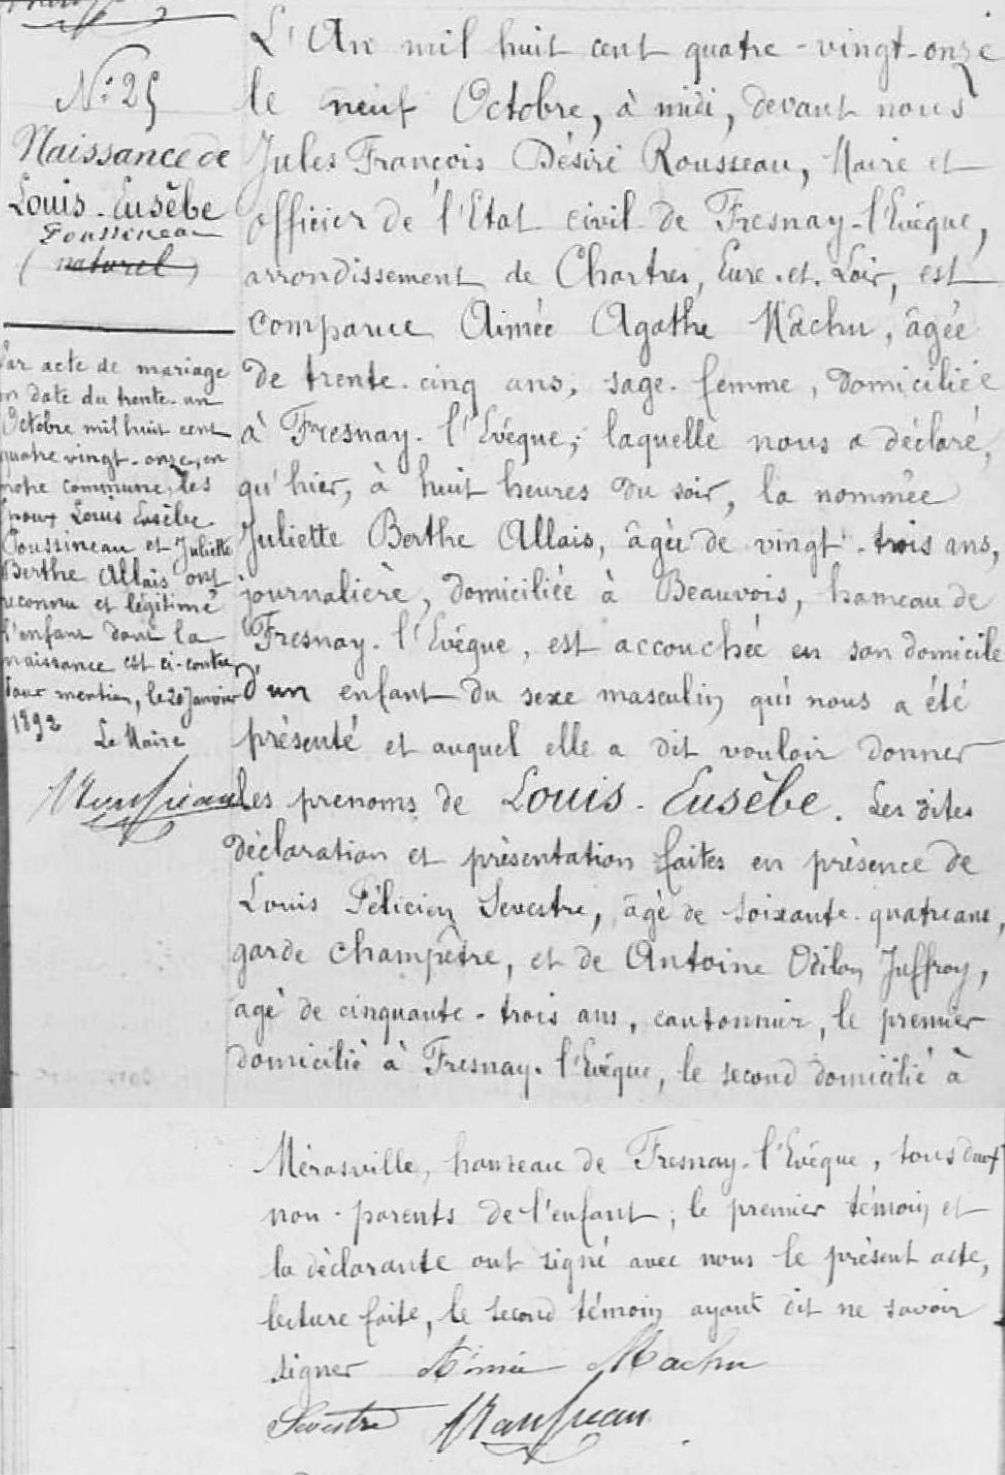 N° 25
Naissance de
Louis-Eusèbe
Poussineau
(naturel)
Par acte de mariage
en date du trente-un
Octobre mil huit cent
quatre vingt-onze, en
notre commune, les
époux Louis Eusèbe
Poussineau et Juliette
Berthe Allais ont
reconnu et légitimé
l'enfant dont la
naissance est ci-contre
Pour mention, le 20 Janvier
1892
Le Maire
Rousseau
L'An mil huit cent quatre-vingt-onze
le neuf Octobre, à midi, devant nous
Jules François Désiré Rousseau, Maire et
officier de l'Etat civil de Fresnay-l'Evêque,
arrondissement de Chartres, Eure-et-Loir, est
comparue Aimée Agathe Machu, âgée
de trente-cinq ans, sage-femme, domiciliée
à Fresnay-l'Evêque; laquelle nous a déclaré,
qu'hier, à huit heures du soir, la nommée
Juliette Berthe Allais, âgée de vingt-trois ans,
journalière, domiciliée à Beauvois, hameau de
Fresnay-l'Evêque, est accouchée en son domicile
d'un enfant du sexe masculin qui nous a été
présenté et auquel elle a dit vouloir donner
les prenoms de Louis-Eusèbe. Les dites
déclaration et présentation faites en présence de
Louis Félicien Sevestre, âgé de soixante-quatre ans,
garde champêtre, et de Antoine Odilon Juffroy,
agé de cinquante-trois ans, cantonnier, le premier
domicilié à Fresnay-l'Evêque, le second domicilié à
Mérasville, hameau de Fresnay-l'Evêque, tous deux
non-parents de l'enfant; le premier témoin et
la déclarante ont signé avec nous le présent acte,
lecture faite, le second témoin ayant dit ne savoir
signer Aimée Machu
Sevestre Rousseau